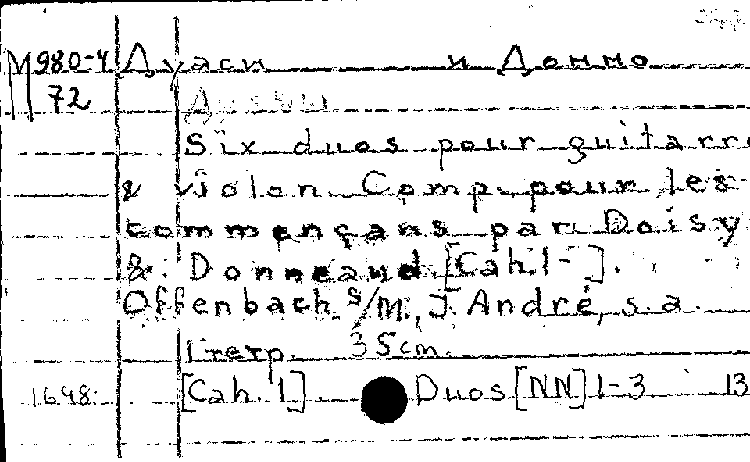 M 980-4 Дуаси и Донно
72
Six duos pour guitarre
& violon. Comp. pour les
commençans par Doisy
& Donneaud. [Cah. 1- ].
Offenbach s/M., J. André, s.a.
1 тетр. 35 cm.
1648: [Cah. 1] Duos [NN] 1-3 13